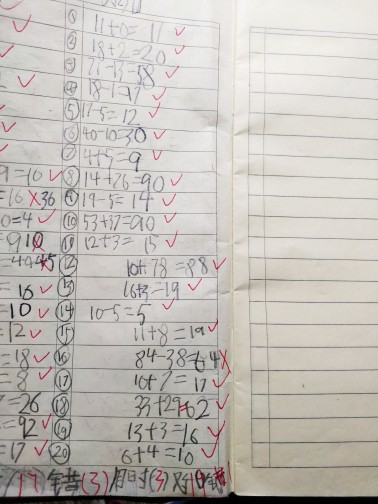 11+0=11
18+2=20
18-1=17
⑤ 17-5=12
⑥ 40-10=30
⑦ 4+5=9
9=10 ⑧ 14+26=90
=16 36 ⑨ 19-5=14
0=4 ⑩ 53+37=90
⑪ 12+3=15
⑫ 10+78=88
=16 ⑬ 16+3=19
=10 ⑭ 10-5=5
=12 ⑮ 11+8=19
=18 ⑯ 84-38=64
=8 ⑰ 10+7=17
=26 ⑱ 33+29=62
=92 ⑲ 13+3=16
=17 ⑳ 6+4=10
错(3)用时(3)